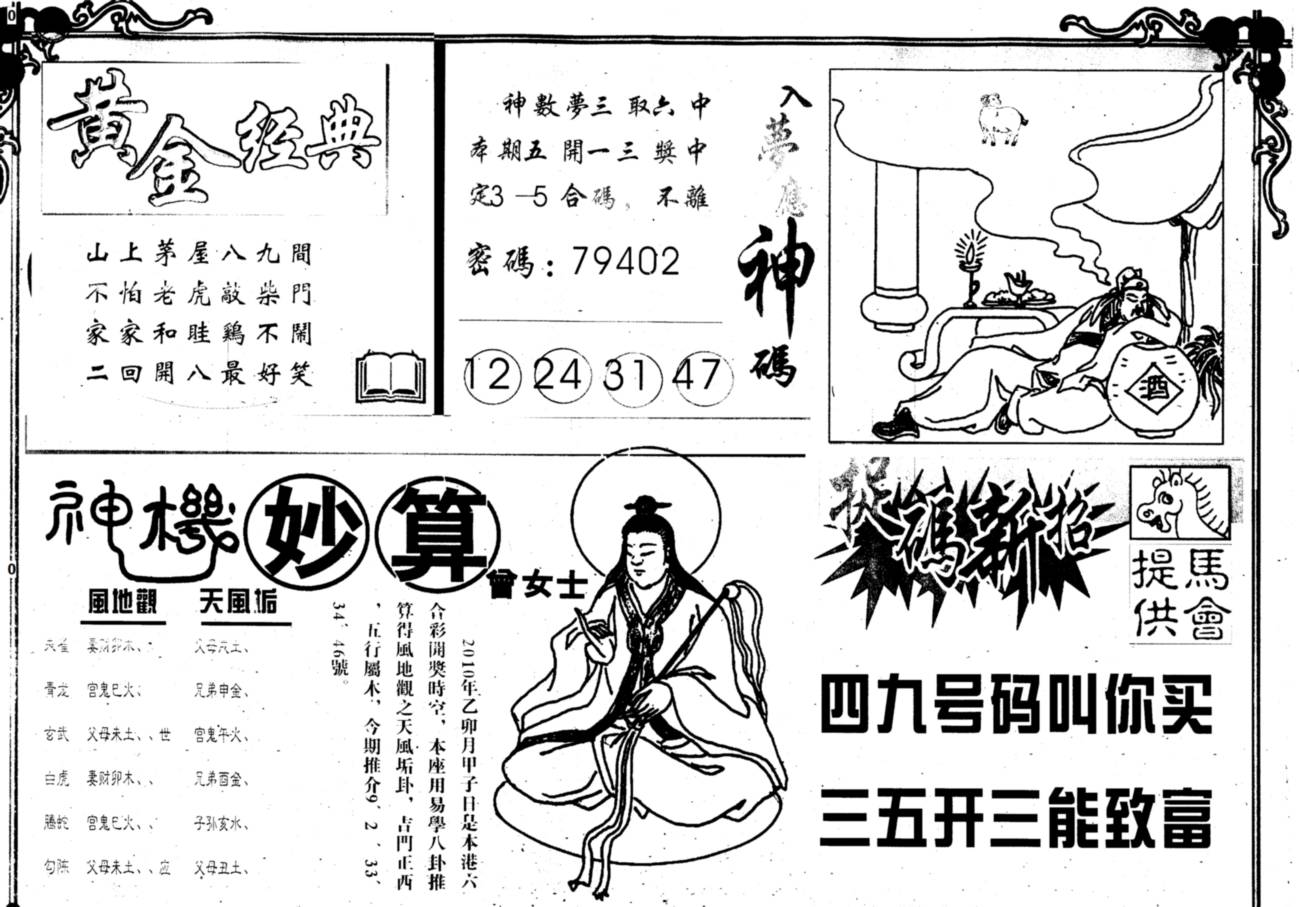 黃金經典
山上茅屋八九間
不怕老虎敲柴門
家家和眭鷄不鬧
二回開八最好笑
神數夢三取六中
本期五開一三獎中
定3—5合碼、不離
密碼：79402
12 24 31 47
入夢應神碼
酒
神機妙算
曾女士
風地觀 天風垢
朱雀 妻财卯木、、 父母戌土、
青龙 官鬼巳火、 兄弟申金、
玄武 父母未土、、世 官鬼午火、
白虎 妻财卯木、、 兄弟酉金、
騰蛇 官鬼巳火、、 子孙亥水、
勾陈 父母未土、、应 父母丑土、
2010年乙卯月甲子日是本港六
合彩開獎時空，本座用易學八卦推
算得風地觀之天風垢卦，吉門正西
，五行屬木，今期推介9、2、33、
34、46號。
捉碼新招
馬會提供
四九号码叫你买
三五开三能致富